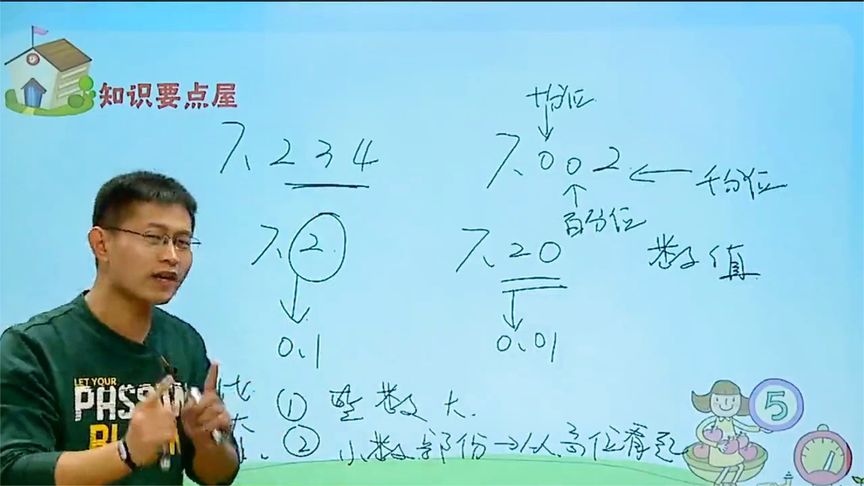 知识要点屋
十分位
7.234
7.002
千分位
百分位
7.2
7.20
数值
0.1
0.01
LET YOUR
PASSION
比
① 整数大.
② 小数部份→从高位看起
5